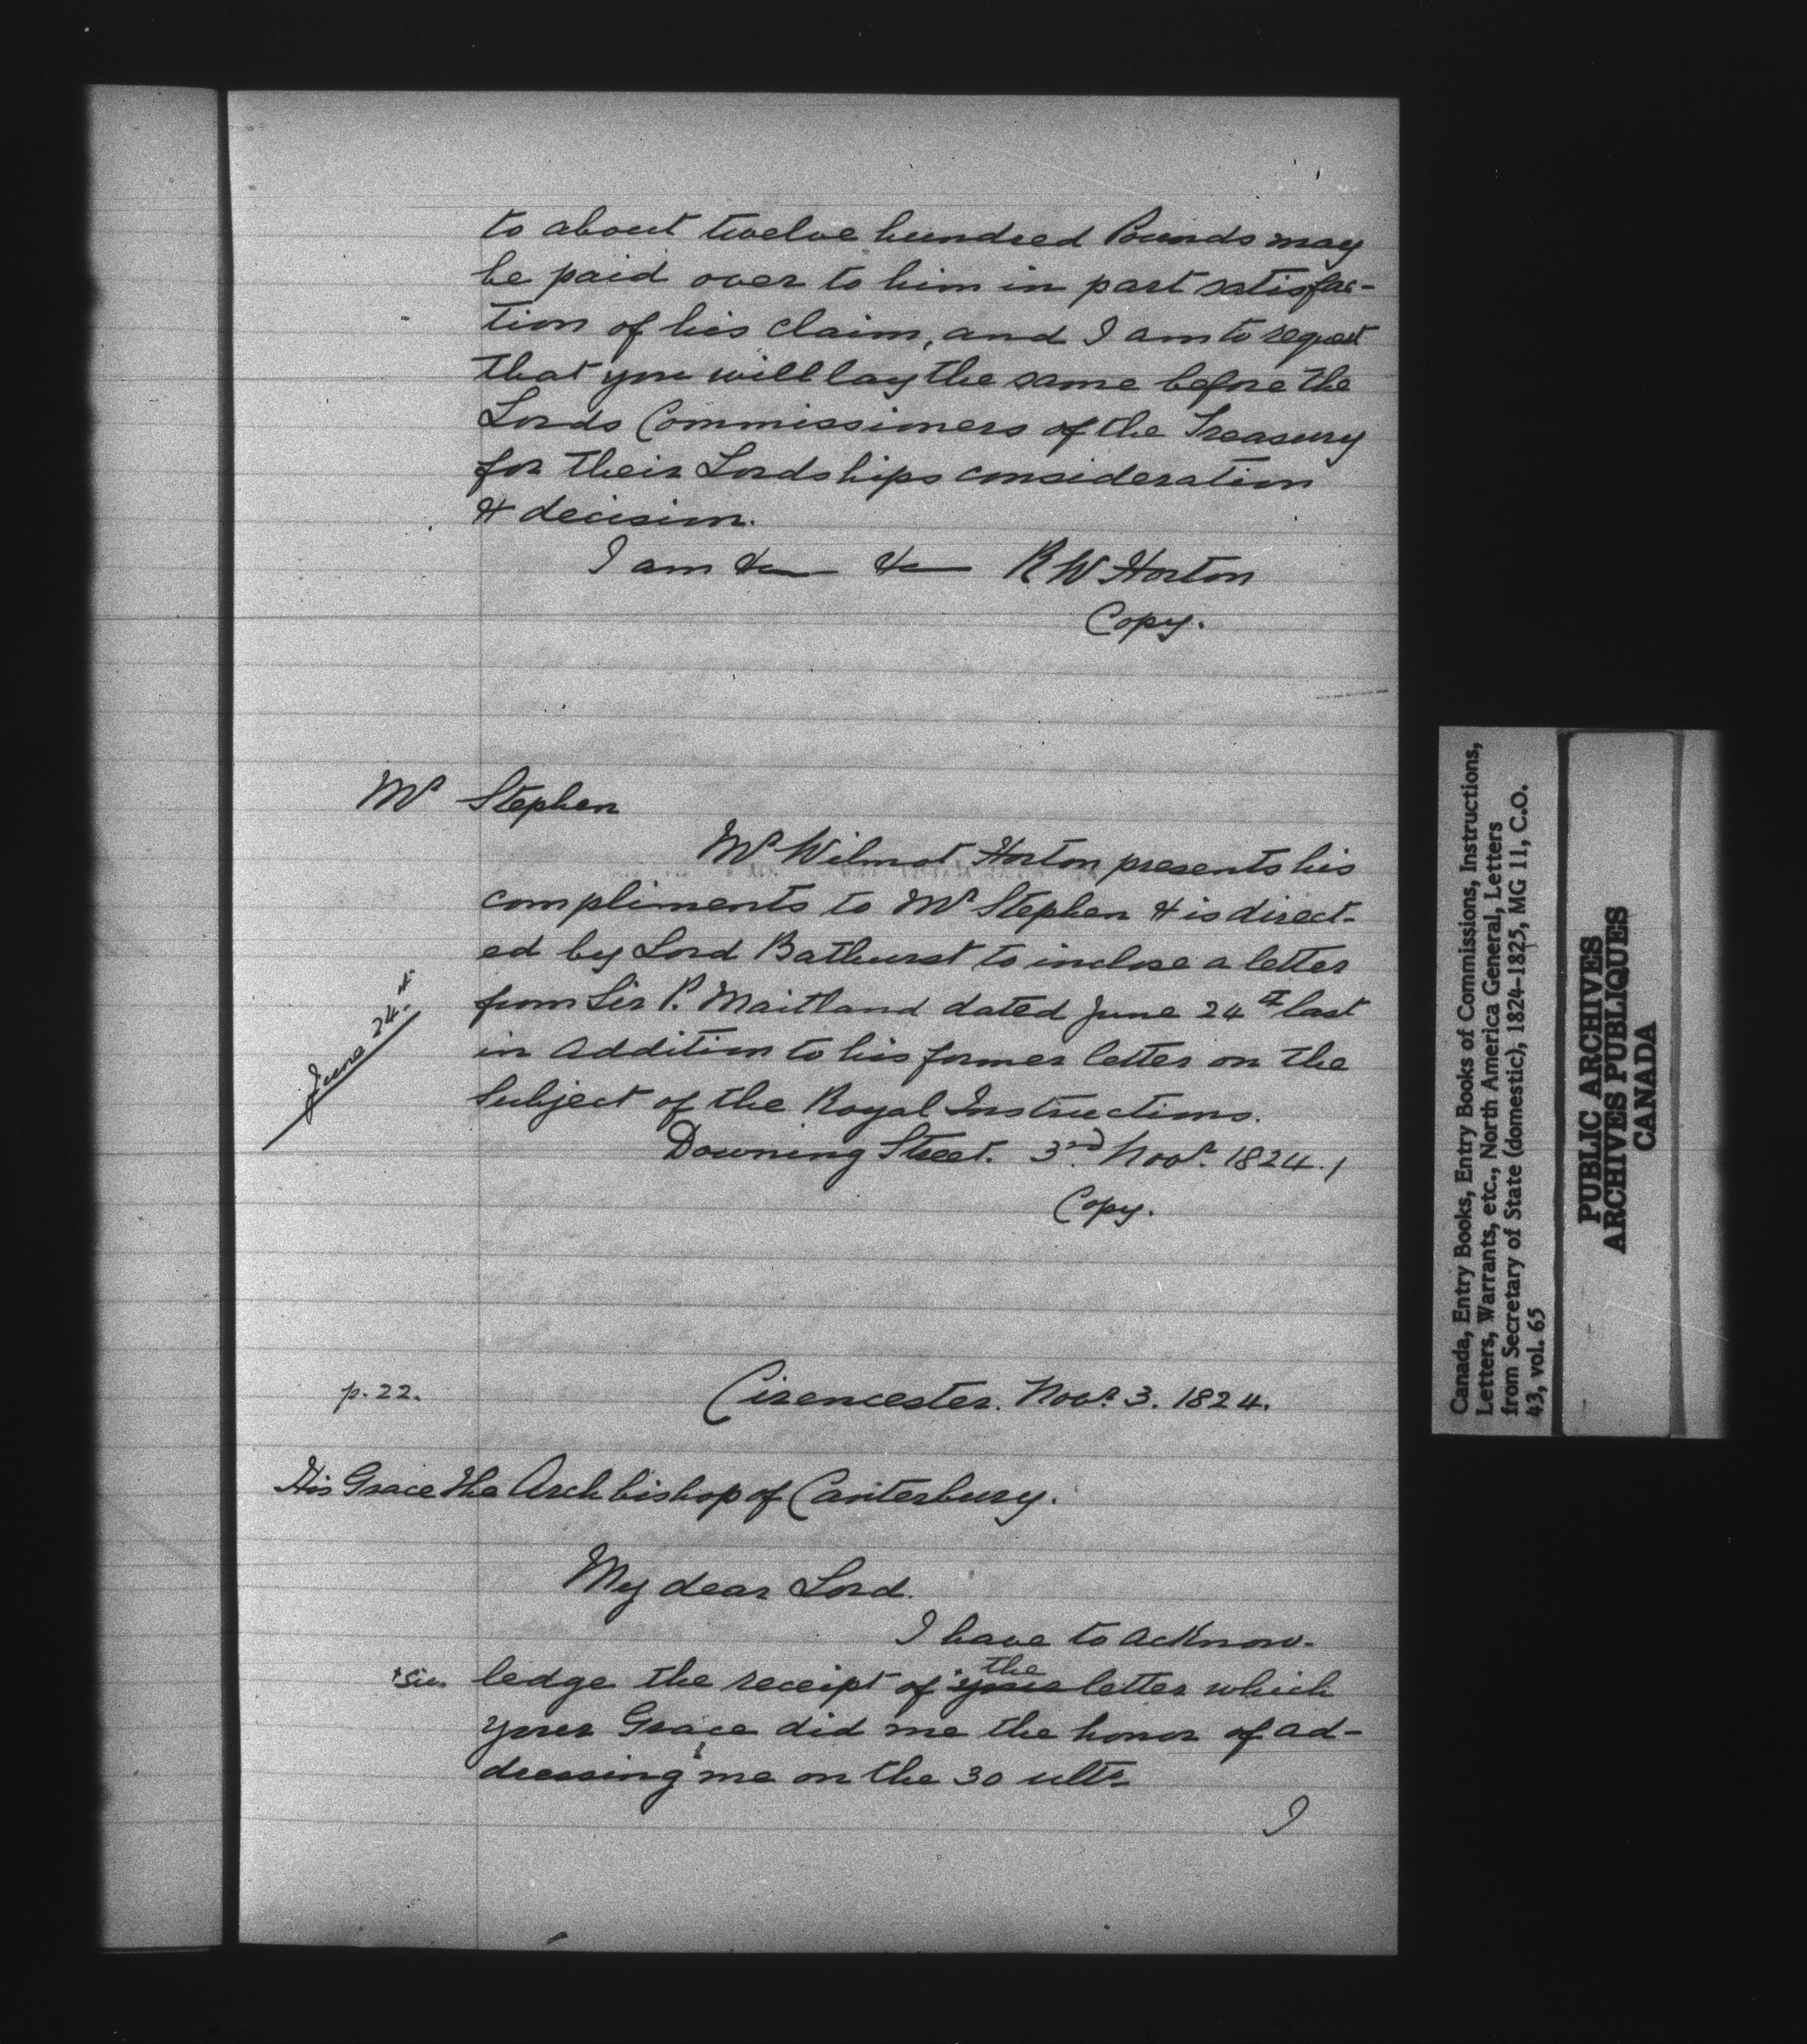 to about twelve hundred Pounds may
be paid over to him in part satisfac-
tion of his claim, and I am to request
that you will lay the same before the
Lords Commissioners of the Treasury
for their Lordships consideration
& decision.
I am &c &c R W Horton
Copy.
Mr Stephen
Mr Wilmot Horton presents his
compliments to Mr Stephen & is direct-
ed by Lord Bathurst to inclose a letter
from Sir P. Maitland dated June 24th last
June 24th
in addition to his former letter on the
Subject of the Royal Instructions.
Downing Street. 3rd Novr. 1824.
Copy.
p. 22.
Cirencester. Novr. 3. 1824.
His Grace the Archbishop of Canterbury.
My dear Lord.
I have to acknow-
ledge the receipt of your the letter which
your Grace did me the honor of ad-
dressing me on the 30 ulto
I
Canada, Entry Books, Entry Books of Commissions, Instructions,
Letters, Warrants, etc., North America General, Letters
from Secretary of State (domestic), 1824-1825, MG 11, C.O.
43, vol. 65
PUBLIC ARCHIVES
ARCHIVES PUBLIQUES
CANADA